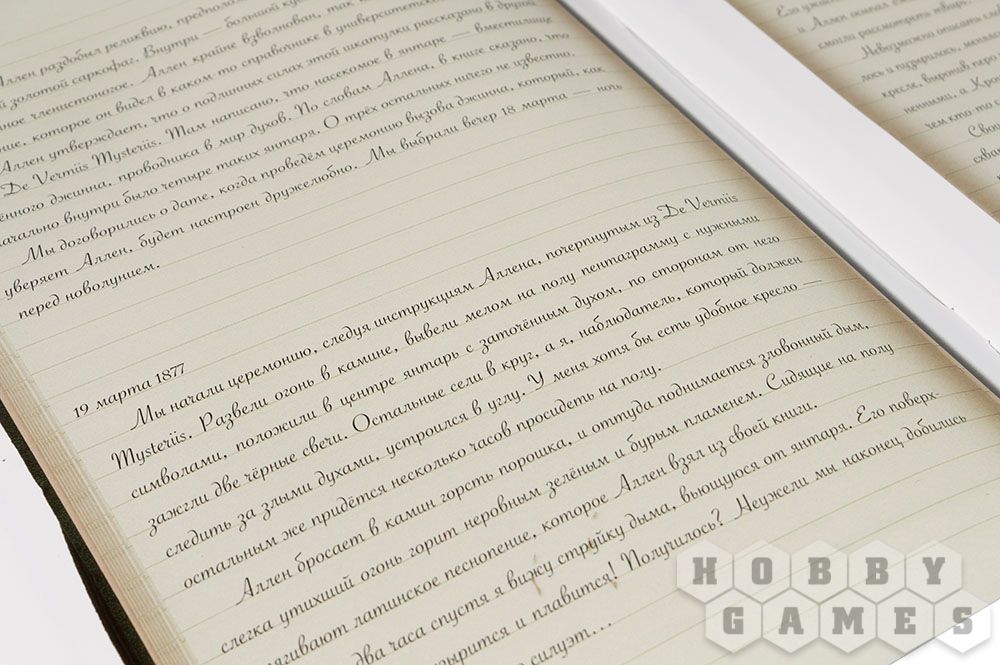 Аллен раздобыл реликвию, предполо
й золотой саркофаг. Внутри — большой ку
ное членистоногое. Аллен крайне взволнован, так к
ние, которое он видел в каком-то справочнике в университетской
Аллен утверждает, что о подлинных силах этой шкатулки рассказано в другой
De Vermiis Mysteriis. Там написано, что насекомое в янтаре — вместилище
ённого джинна, проводника в мир духов. По словам Аллена, в книге сказано, что
начально внутри было четыре таких янтаря. О трёх остальных ничего не известно.
Мы договорились о дате, когда проведём церемонию вызова джинна, который, как
уверяет Аллен, будет настроен дружелюбно. Мы выбрали вечер 18 марта — ночь
перед новолунием.
19 марта 1877
Мы начали церемонию, следуя инструкциям Аллена, почерпнутым из De Vermiis
Mysteriis. Развели огонь в камине, вывели мелом на полу пентаграмму с нужными
символами, положили в центре янтарь с заточённым духом, по сторонам от него
зажгли две чёрные свечи. Остальные сели в круг, а я, наблюдатель, который должен
следить за злыми духами, устроился в углу. У меня хотя бы есть удобное кресло —
остальным же придётся несколько часов просидеть на полу.
Аллен бросает в камин горсть порошка, и оттуда поднимается зловонный дым,
слегка утихший огонь горит неровным зелёным и бурым пламенем. Сидящие на полу
тягивают латинское песнопение, которое Аллен взял из своей книги.
два часа спустя я вижу струйку дыма, вьющуюся от янтаря. Его поверх-
зырится и плавится! Получилось? Неужели мы наконец добились
силуэт...
Его ужа
и Аллен остал
смогли рассмотреть тварь.
Невозможно описать сло
лось и пузырилось, меняло
кресле, выронив перо
ненными, а Кро
чем кто-то
Сво
схва
HOBBY
GAMES